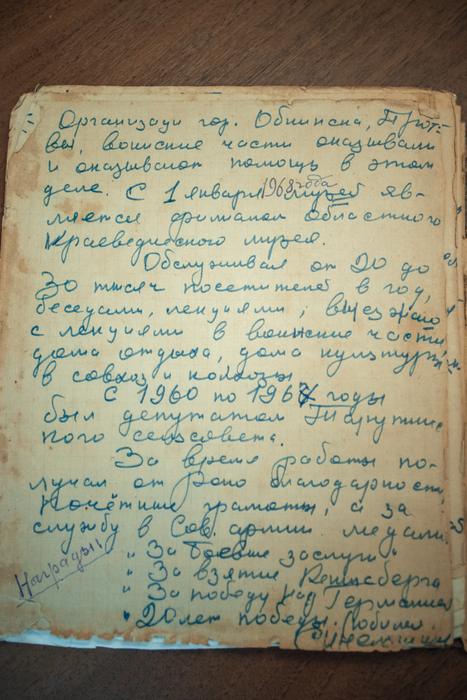 Организации гор. Обнинска, Прот-
вы, воинские части оказывали
и оказывают помощь в этом
деле. С 1 января 1968 года музей яв-
ляется филиалом областного
Краеведческого музея.
Обслуживал от 20 до
30 тысяч посетителей в год,
беседами, лекциями, выезжаю
с лекциями в воинские части,
дома отдыха, дома культуры,
в совхозы и колхозы
С 1960 по 1967 годы
был депутатом Тарутинс
кого сельсовета.
За время работы по-
лучал от Роно благодарности,
почётные грамоты, а за
службу в Сов. армии медали.
„За боевые заслуги"
Награды:
„За взятие Кенигсберга
„За победу над Германией
„20 лет победы.